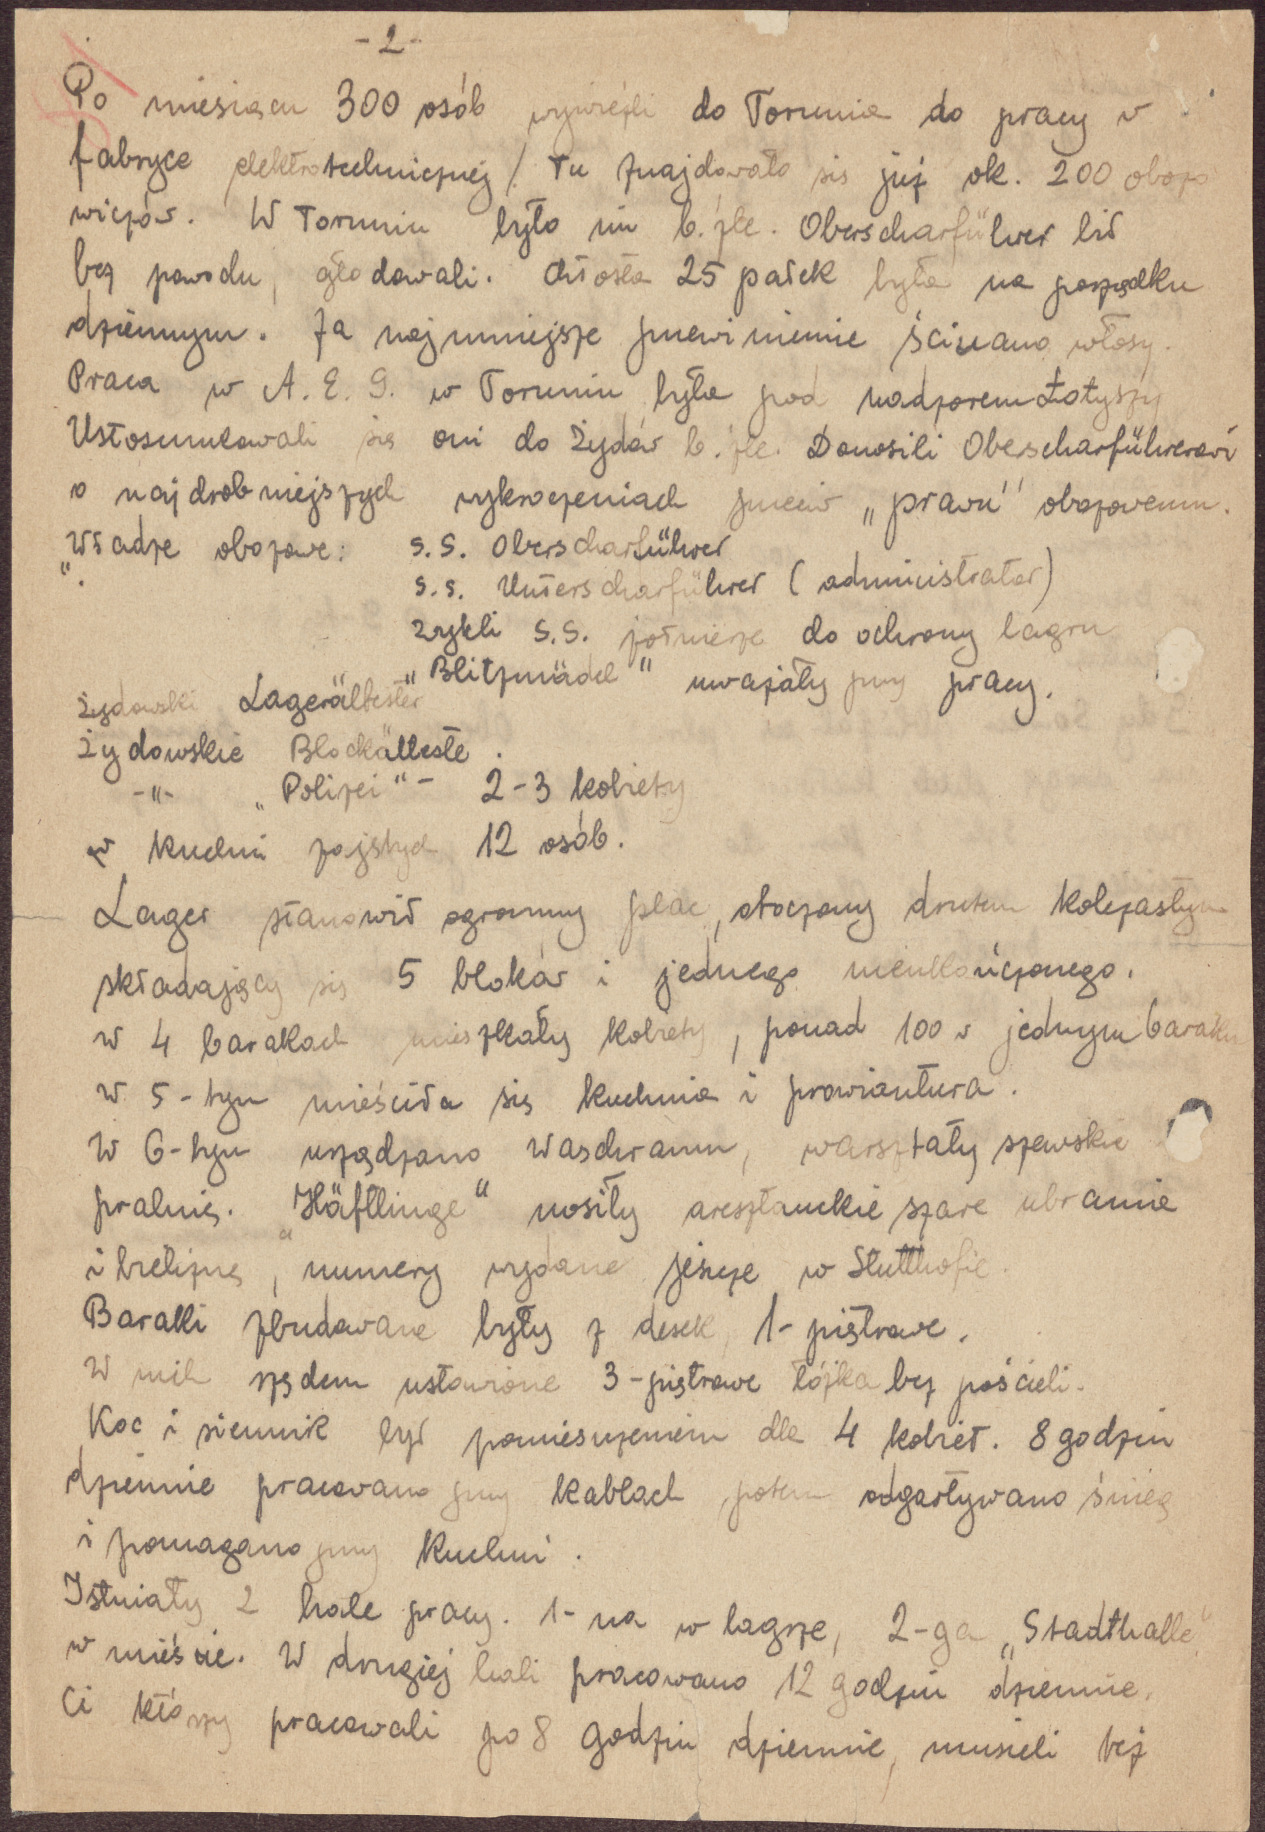 - 2 -
Po miesiącu 300 osób wywieźli do Torunia do pracy w
fabryce elektrotechnicznej /. Tu znajdowało się już ok. 200 obozo
wiczów. W Toruniu było im b. źle. Oberscharführer bił
bez powodu, głodowali. Chłosta 25 pałek była na porządku
dziennym. Za najmniejsze przewinienie ścinano włosy.
Praca w A. E. G. w Toruniu była pod nadzorem Łotyszy
Ustosunkowali się oni do Żydów b. źle. Donosili Oberscharführerowi
o najdrobniejszych wykroczeniach przeciw „prawu" obozowemu.
Władze obozowe: S.S. Oberscharführer
S.S. Unterscharführer (administrator)
zwykli S.S. żołnierze do ochrony lagru
„Blitzmädel" uważały przy pracy.
Żydowski Lagerältester
Żydowskie Blockälteste.
-"- „Polizei" - 2-3 kobiety
w kuchni zajętych 12 osób.
Lager stanowił ogromny plac, otoczony drutem kolczastym
składający się 5 bloków i jednego nieukończonego.
w 4 barakach mieszkały kobiety, ponad 100 w jednym baraku
W 5-tym mieściła się kuchnia i prowiantura.
W 6-tym urządzano Waschraum, warsztaty szewskie
pralnię. „Häftlinge" nosiły aresztanckie szare ubranie
i bieliznę, numery wydane jeszcze w Stutthofie.
Baraki zbudowane były z desek, 1-piętrowe.
W nich rzędem ustawione 3-piętrowe łóżka bez pościeli.
Koc i siennik był pomieszczeniem dla 4 kobiet. 8 godzin
dziennie pracowano przy kablach, potem odgartywano śnieg
i pomagano przy kuchni.
Istniały 2 hale pracy. 1-na w lagrze, 2-ga „Stadthalle"
w mieście. W drugiej hali pracowano 12 godzin dziennie.
Ci którzy pracowali po 8 godzin dziennie, musieli bez